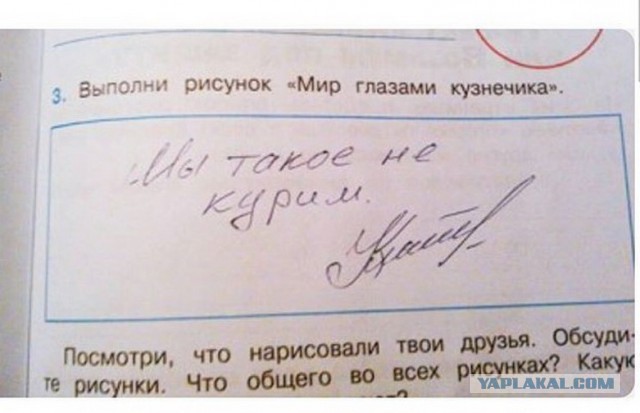 3. Выполни рисунок «Мир глазами кузнечика».
Мы такое не
курим.
Посмотри, что нарисовали твои друзья. Обсуди-
те рисунки. Что общего во всех рисунках? Какую
YAPLAKAL.COM